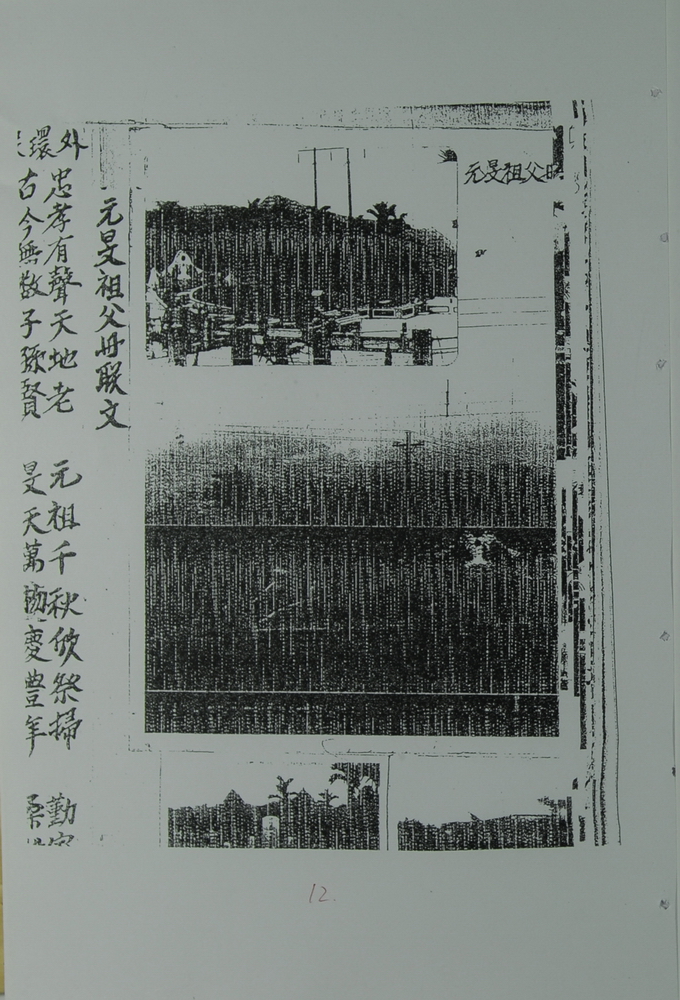 元旻祖父
元旻祖父毋联文
外環
忠孝有聲天地老
古今無数子孫賢
元祖千秋欣祭掃
旻天萬物慶豊年
勤
桑
12.